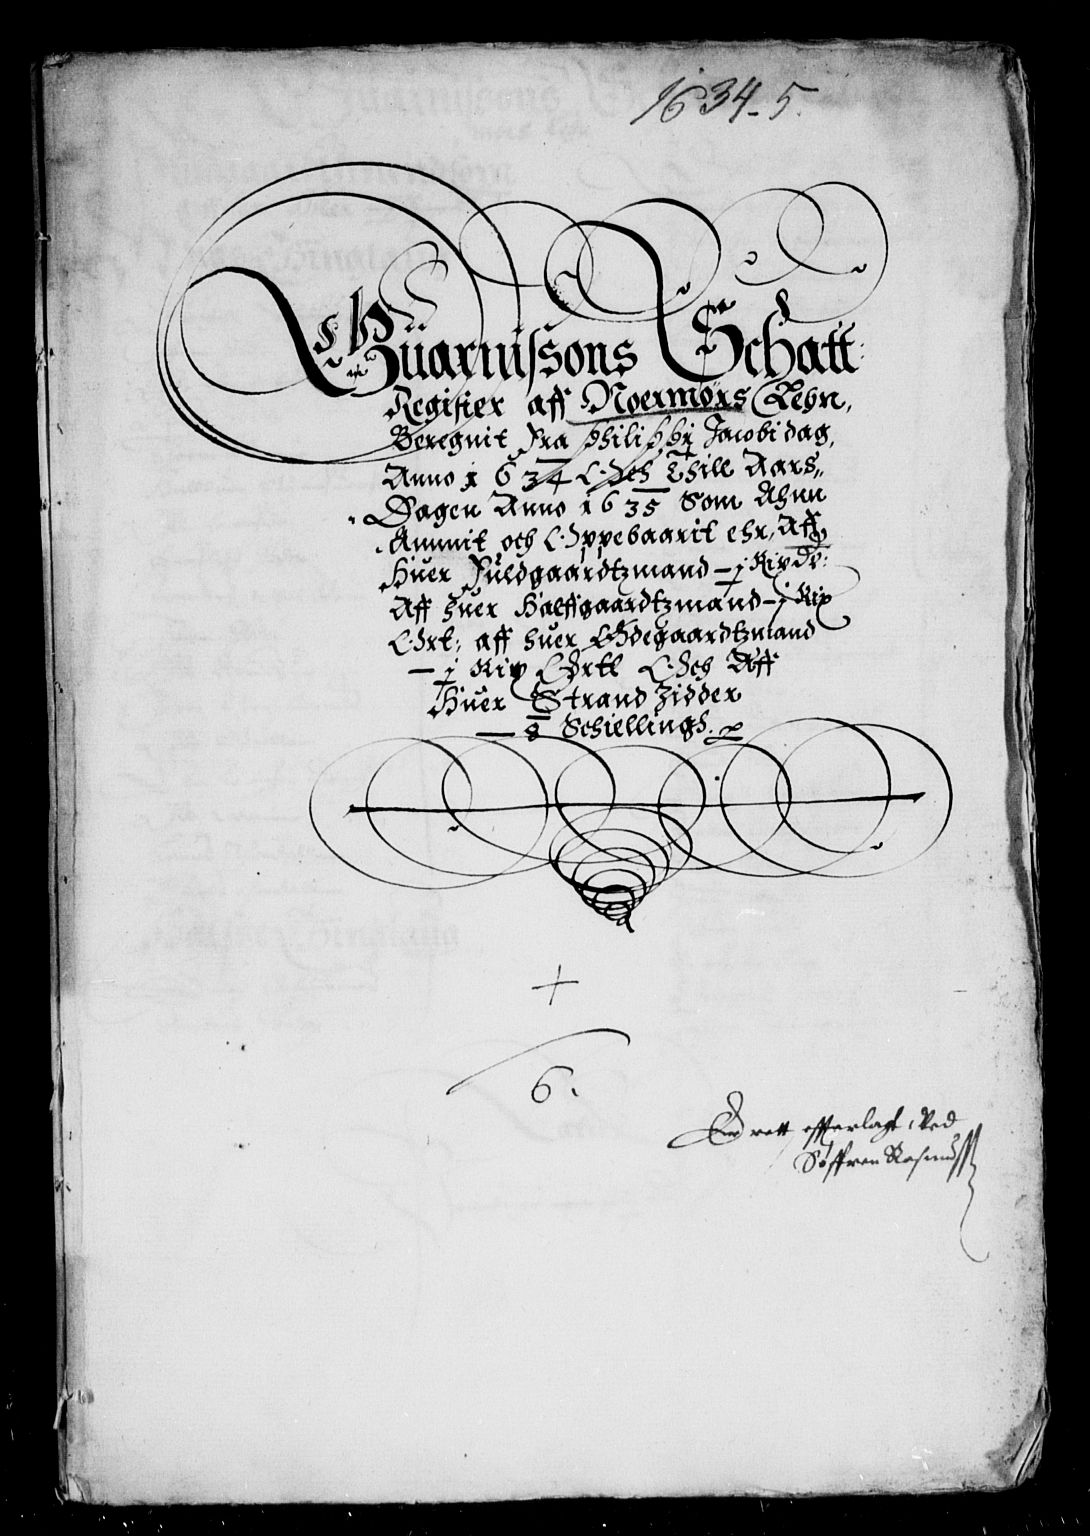 1634-5.
Guarnissons Schatt:
Register aff Noermørs Lehn,
Beregnit fra Philippi Jacobi dag,
Anno 1634 Och Thill Aars,,
Dagen Anno 1635 Som Ahnn
Ammit och Oppebaarit ehr, Aff
Huer Fuldgaardtzmand – j Rixdr:
Aff huer Halffgaardtzmand – j Rix
Ort: aff huer Ødegaardtzmand
– j Rix Ortt Och Aff
Huer Strand zidder
– 8 Schiellingh.
+
6.
rett effterlagt, Ved
Søffren Rasmuss